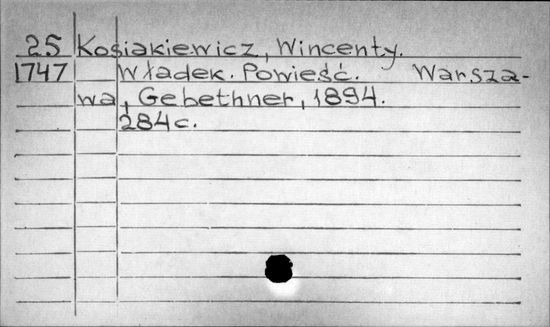 25 Kosiakiewicz, Wincenty.
1747 Władek. Powieść. Warsza-
wa, Gebethner, 1894.
284 c.